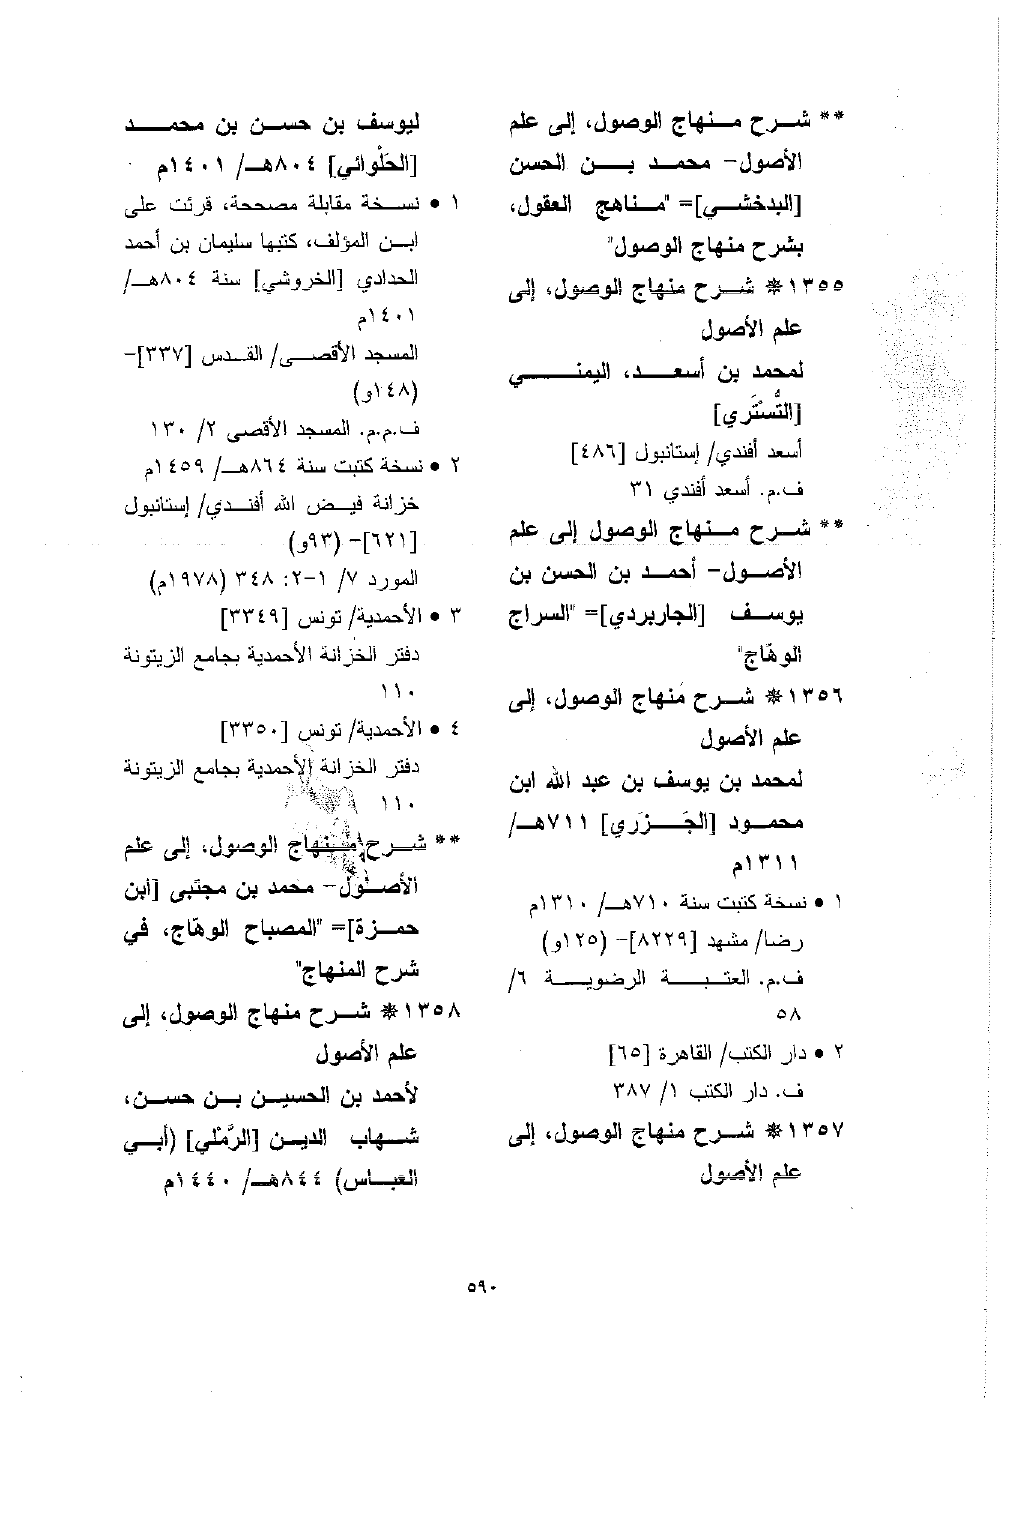 ** شرح منهاج الوصول، إلى علم
الأصول- محمد بن الحسن
[البدخشي]= "مناهج العقول،
بشرح منهاج الوصول"
١٣٥٥* شرح منهاج الوصول، إلى
علم الأصول
لمحمد بن أسعد، اليمني
[التُّسْتَري]
أسعد أفندي/ إستانبول [٤٨٦]
ف.م. أسعد أفندي ٣١
** شرح منهاج الوصول إلى علم
الأصول- أحمد بن الحسن بن
يوسف [الجاربردي]= "السراج
الوهّاج"
١٣٥٦* شرح منهاج الوصول، إلى
علم الأصول
لمحمد بن يوسف بن عبد الله ابن
محمود [الجَزري] ٧١١هـ/
١٣١١م
١ • نسخة كتبت سنة ٧١٠هـ/ ١٣١٠م
رضا/ مشهد [٨٢٢٩]- (١٢٥و)
ف.م. العتبة الرضوية ٦/
٥٨
٢ • دار الكتب/ القاهرة [٦٥]
ف. دار الكتب ١/ ٣٨٧
١٣٥٧* شرح منهاج الوصول، إلى
علم الأصول
ليوسف بن حسن بن محمد
[الحَلْوائي] ٨٠٤هـ/ ١٤٠١م
١ • نسخة مقابلة مصححة، قرئت على
ابن المؤلف، كتبها سليمان بن أحمد
الحدادي [الخروشي] سنة ٨٠٤هـ/
١٤٠١م
المسجد الأقصى/ القدس [٣٣٧]-
(١٤٨و)
ف.م.م. المسجد الأقصى ٢/ ١٣٠
٢ • نسخة كتبت سنة ٨٦٤هـ/ ١٤٥٩م
خزانة فيض الله أفندي/ إستانبول
[٦٢١]- (٩٣و)
المورد ٧/ ١-٢: ٣٤٨ (١٩٧٨م)
٣ • الأحمدية/ تونس [٣٣٤٩]
دفتر الخزانة الأحمدية بجامع الزيتونة
١١٠
٤ • الأحمدية/ تونس [٣٣٥٠]
دفتر الخزانة الأحمدية بجامع الزيتونة
١١٠
** شرح منهاج الوصول، إلى علم
الأصول- محمد بن مجتبى [ابن
حمزة]= "المصباح الوهّاج، في
شرح المنهاج"
١٣٥٨* شرح منهاج الوصول، إلى
علم الأصول
لأحمد بن الحسين بن حسن،
شهاب الدين [الرَّمْلي] (أبي
العباس) ٨٤٤هـ/ ١٤٤٠م
٥٩٠